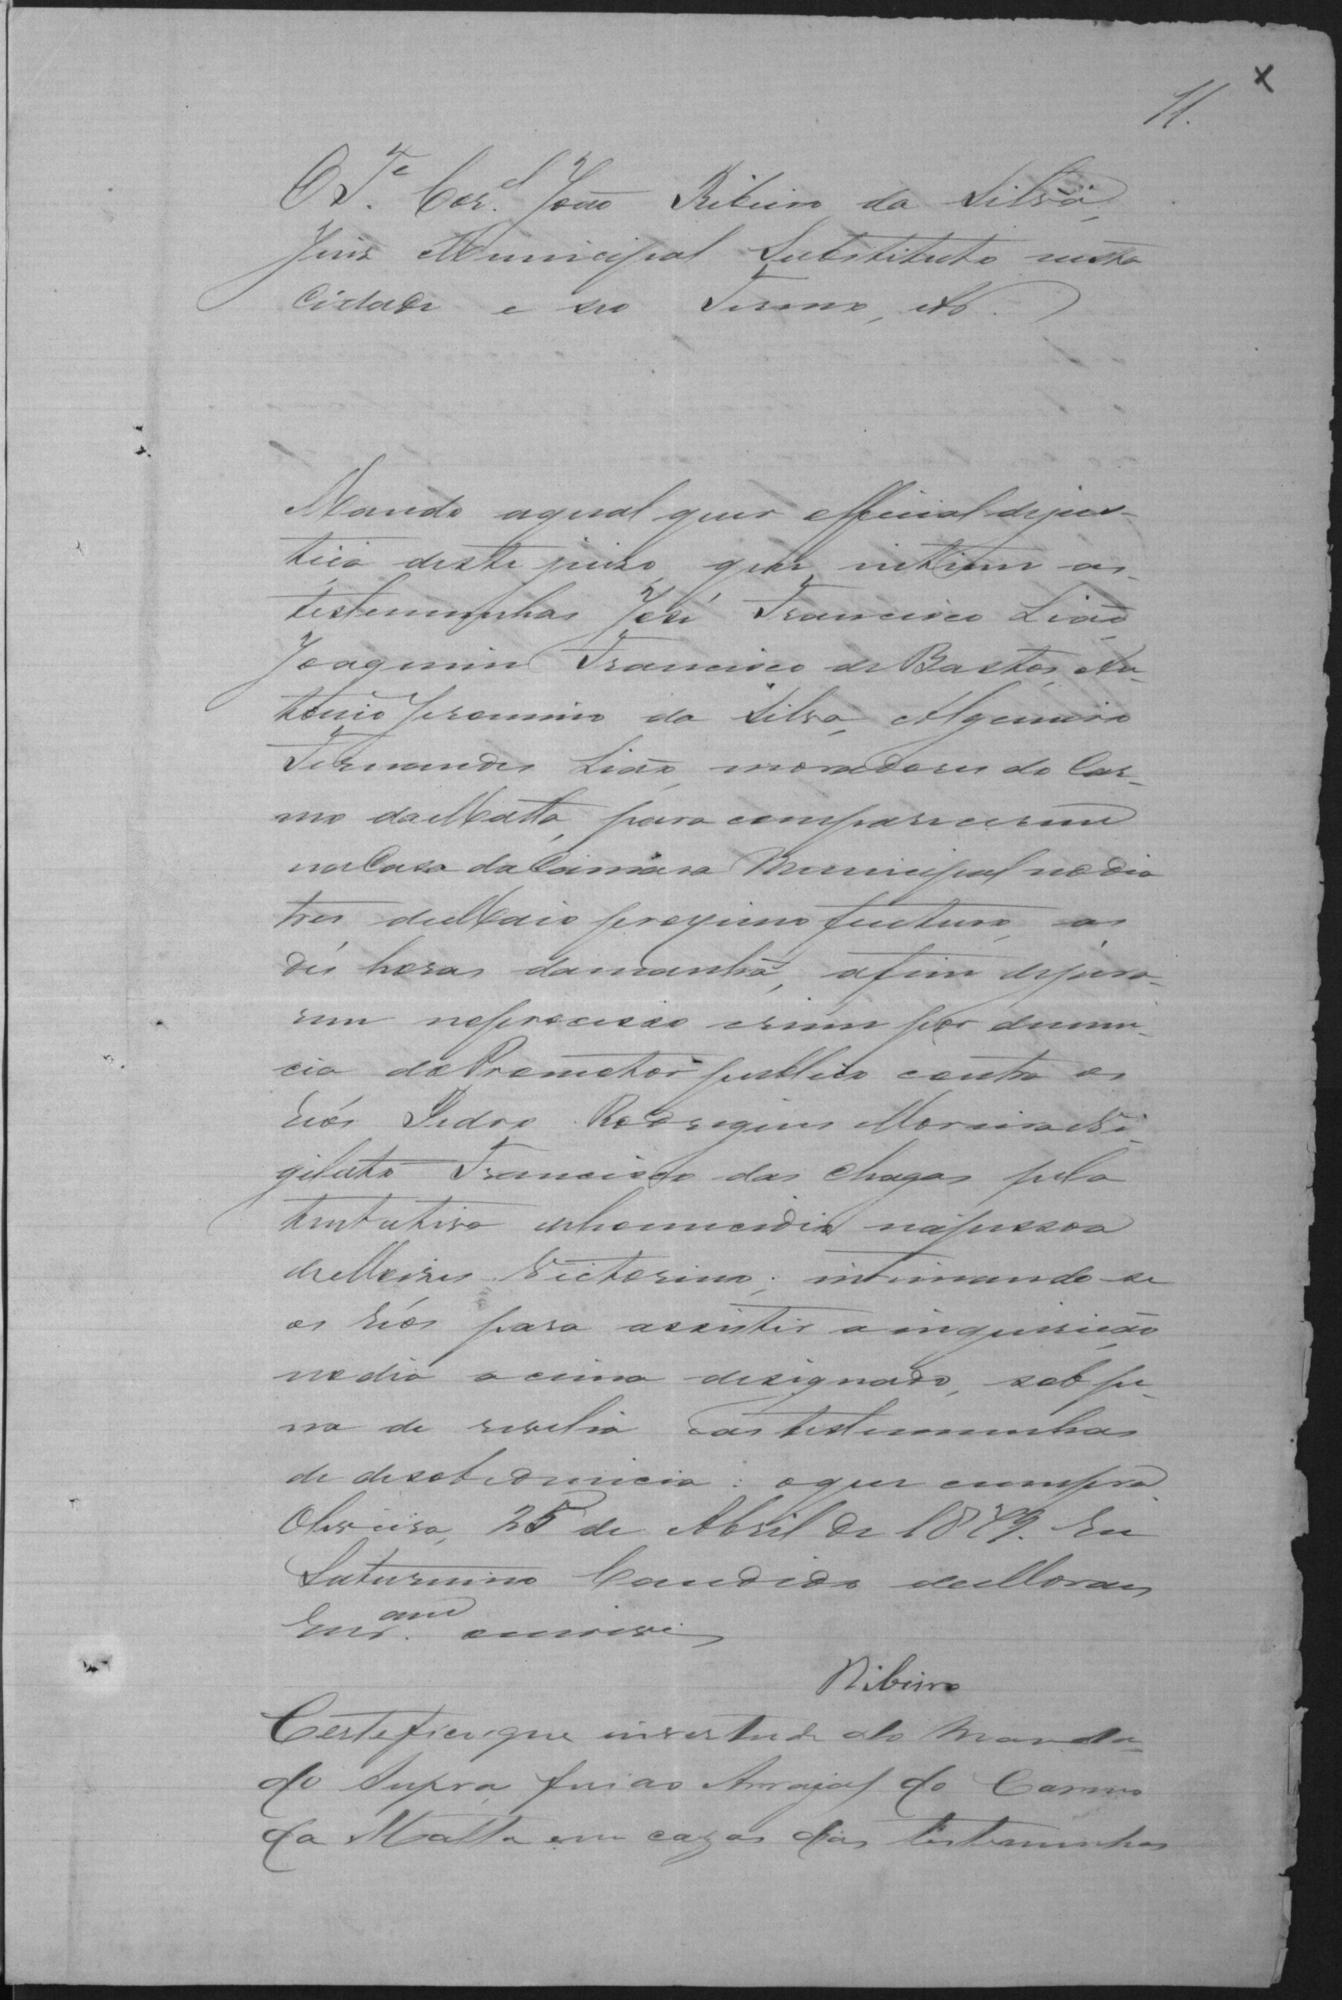 11.
O T.e Cor.el João Ribeiro da Silva,
Juis Municipal Substituto nesta
Cidade e seo Termo, etc.
Mando aqual quer official dejus-
tiça deste juizo, que intime as
testemunhas José Francisco Lião,
Joaquim Francisco de Bastos, An-
tonio Jeronimo da Silva, Algemiro
Fernandes Lião, moradores do Car-
mo daMatta, para comparecerem
na Casa da Camara Municipal no dia
tres deMaio proximo futuro, as
dés horas damanhã, afim dejura-
rem noprocesso crime por denun-
cia do Promotor publico contra os
réos Pedro Rodrigues Moreira e
Francisco das Chagas pela
tentativa dehomicidio napessoa
deMoizes Victorino; intimando-se
os réos para assistir a inquirição
nodia acima designado, sob pe-
na de revelia e as testemunhas
de desobediencia: oque cumpra
Oliveira, 25 de Abril de 1879. Eu
Saturnino Candido deMoraes
Escr.am escrevi
Ribeiro
Certefico que invertude do Manda-
do Supra, fui ao Arraial do Carmo
da Matta em cazas das testemunhas